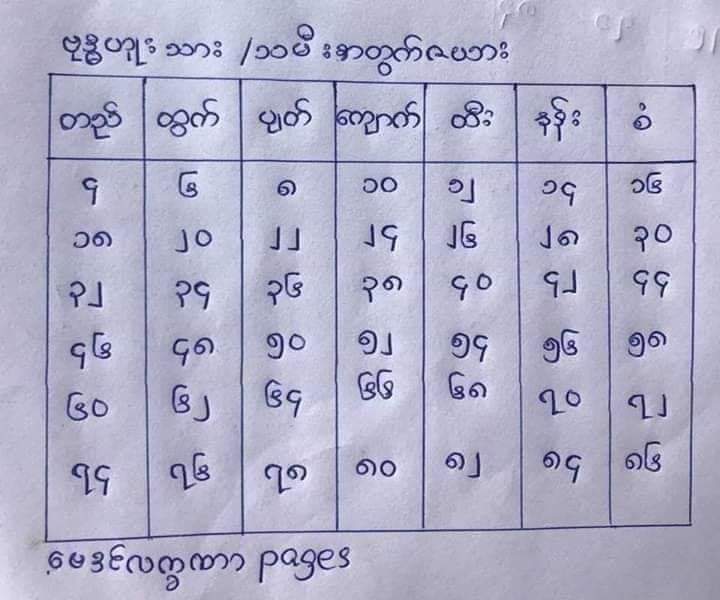 ဗုဒ္ဓဟူး သား /သမီးအတွက်ဇယား
တည် ထွက် ပျက် ကျောက် ထီး နန်း စံ
၄ ၆ ၈ ၁၀ ၁၂ ၁၄ ၁၆
၁၈ ၂၀ ၂၂ ၂၄ ၂၆ ၂၈ ၃၀
၃၂ ၃၄ ၃၆ ၃၈ ၄၀ ၄၂ ၄၄
၄၆ ၄၈ ၅၀ ၅၂ ၅၄ ၅၆ ၅၈
၆၀ ၆၂ ၆၄ ၆၆ ၆၈ ၇၀ ၇၂
၇၄ ၇၆ ၇၈ ၈၀ ၈၂ ၈၄ ၈၆
ဗေဒင်လက္ခဏာ pages